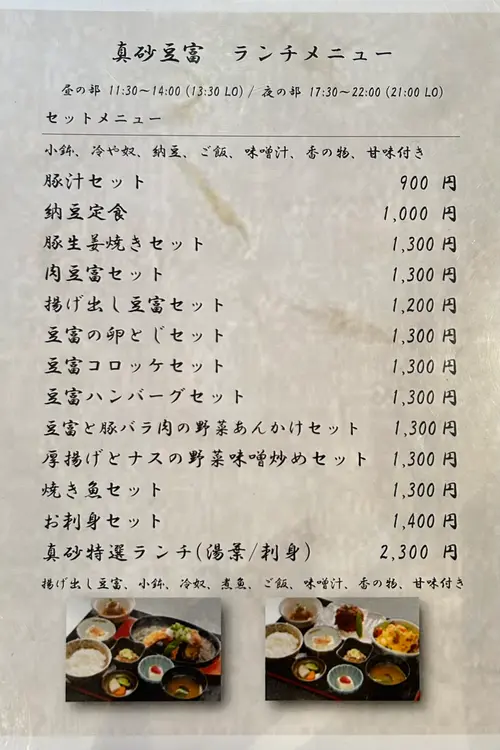 真砂豆富　ランチメニュー
昼の部 11:30～14:00 (13:30 LO) / 夜の部 17:30～22:00 (21:00 LO)
セットメニュー
小鉢、冷や奴、納豆、ご飯、味噌汁、香の物、甘味付き
豚汁セット 900 円
納豆定食 1,000 円
豚生姜焼きセット 1,300 円
肉豆富セット 1,300 円
揚げ出し豆富セット 1,200 円
豆富の卵とじセット 1,300 円
豆富コロッケセット 1,300 円
豆富ハンバーグセット 1,300 円
豆富と豚バラ肉の野菜あんかけセット 1,300 円
厚揚げとナスの野菜味噌炒めセット 1,300 円
焼き魚セット 1,300 円
お刺身セット 1,400 円
真砂特選ランチ(湯葉/刺身) 2,300 円
揚げ出し豆富、小鉢、冷奴、煮魚、ご飯、味噌汁、香の物、甘味付き